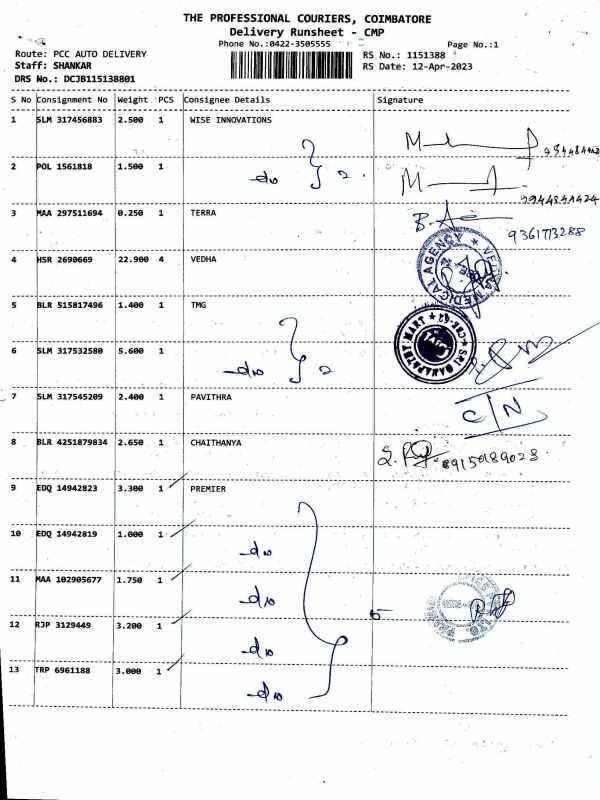 THE PROFESSIONAL COURIERS, COIMBATORE
Delivery Runsheet - CMP
Phone No.:0422-3505555
Page No.:1
Route: PCC AUTO DELIVERY
RS No.: 1151388
Staff: SHANKAR
RS Date: 12-Apr-2023
DRS No.: DCJB115138801
S No Consignment No Weight PCS Consignee Details Signature
1 SLM 317456883 2.500 1 WISE INNOVATIONS
2 POL 1561818 1.500 1 -do 2
9944844424
3 MAA 297511694 0.250 1 TERRA
9361773288
4 HSR 2690669 22.900 4 VEDHA
MEDICAL AGENCY
5 BLR 515817496 1.400 1 TMG
SRI GANAPATHY MART
CBE-62
6 SLM 317532580 5.600 1 -do 2
7 SLM 317545209 2.400 1 PAVITHRA
C/N
8 BLR 4251879834 2.650 1 CHAITHANYA
9 EDQ 14942823 3.300 1 PREMIER
10 EDQ 14942819 1.000 1 -do
11 MAA 102905677 1.750 1 -do
5
12 RJP 3129449 3.200 1 -do
13 TRP 6961188 3.000 1 -do